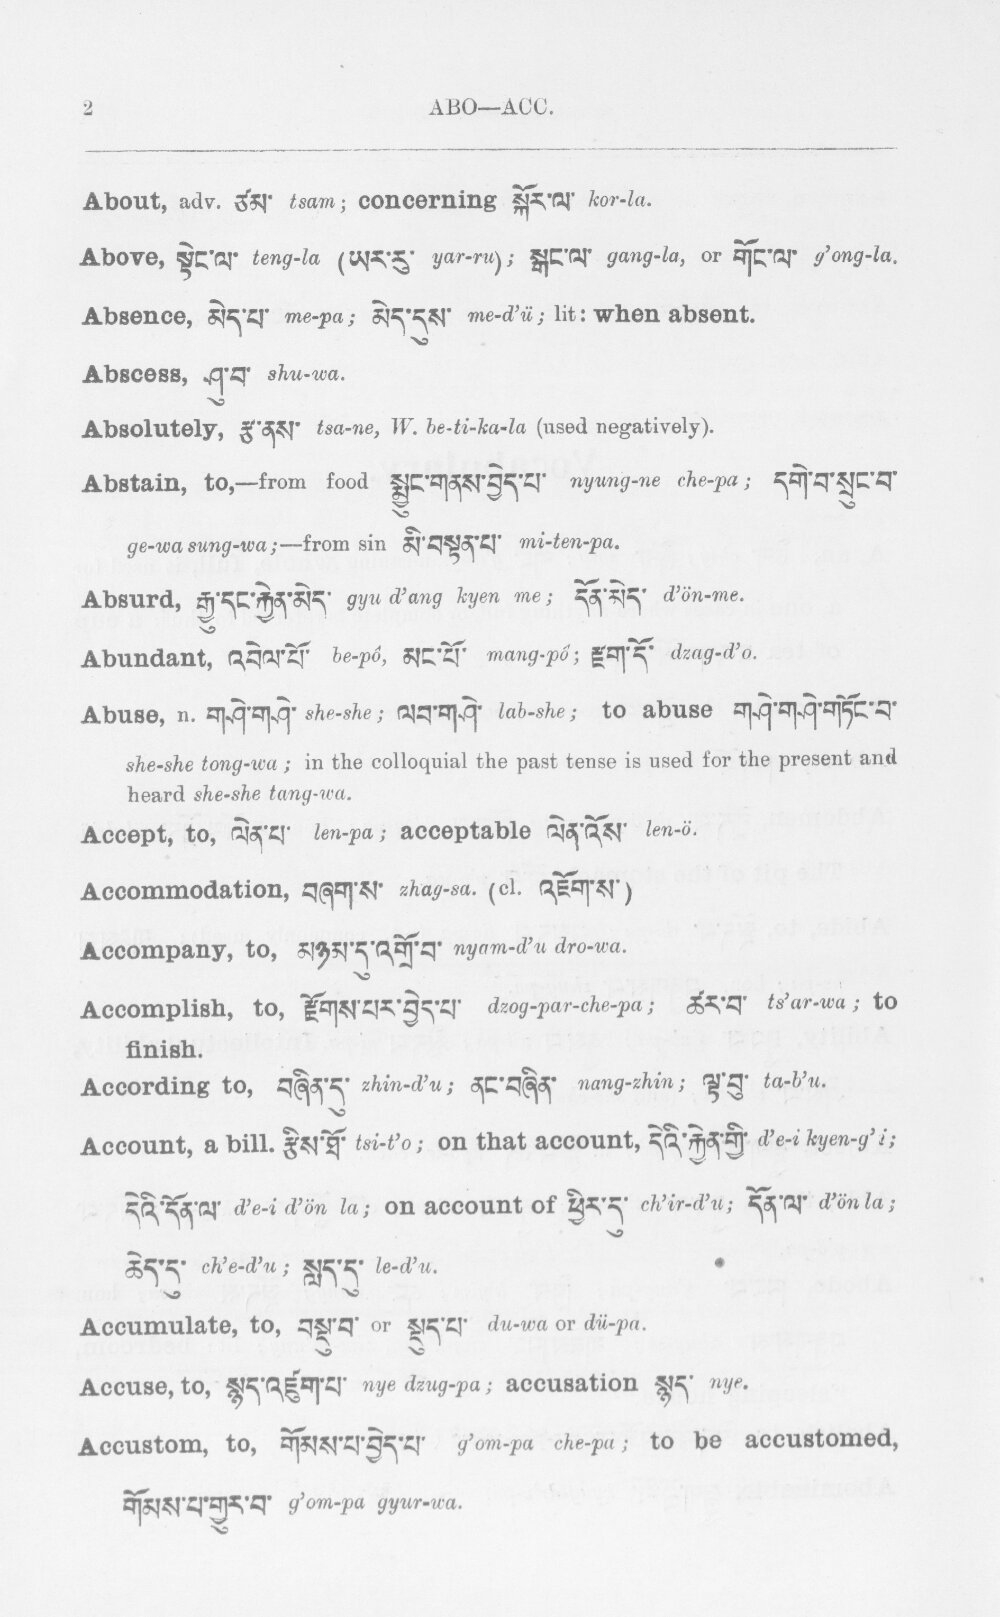 2 ABO—ACC.
About, adv. ཙམ་ tsam; concerning སྐོར་ལ་ kor-la.
Above, སྟེང་ལ་ teng-la (ཡར་རུ་ yar-ru); སྒང་ལ་ gang-la, or གོང་ལ་ g'ong-la.
Absence, མེད་པ་ me-pa; མེད་དུས་ me-d'ü; lit: when absent.
Abscess, ཤུ་བ་ shu-wa.
Absolutely, རྩ་ནས་ tsa-ne, W. be-ti-ka-la (used negatively).
Abstain, to,—from food སྨྱུང་གནས་བྱེད་པ་ nyung-ne che-pa; དགེ་བ་སྲུང་བ་
ge-wa sung-wa;—from sin མི་བསྟན་པ་ mi-ten-pa.
Absurd, རྒྱུ་དང་རྐྱེན་མེད་ gyu d'ang kyen me; དོན་མེད་ d'ön-me.
Abundant, འབེལ་པོ་ be-pó, མང་པོ་ mang-pó; རྫག་དོ་ dzag-d'o.
Abuse, n. ག་ཤེ་ག་ཤེ་ she-she; ལབ་ག་ཤེ་ lab-she; to abuse ག་ཤེ་ག་ཤེ་གཏོང་བ་
she-she tong-wa; in the colloquial the past tense is used for the present and
heard she-she tang-wa.
Accept, to, ལེན་པ་ len-pa; acceptable ལེན་འོས་ len-ö.
Accommodation, བཞག་ས་ zhag-sa. (cl. འཇོག་ས་)
Accompany, to, མཉམ་དུ་འགྲོ་བ་ nyam-d'u dro-wa.
Accomplish, to, རྫོགས་པར་བྱེད་པ་ dzog-par-che-pa; ཚར་བ་ ts'ar-wa; to
finish.
According to, བཞིན་དུ་ zhin-d'u; ནང་བཞིན་ nang-zhin; ལྟ་བུ་ ta-b'u.
Account, a bill. རྩིས་ཐོ་ tsi-t'o; on that account, དེའི་རྐྱེན་གྱི་ d'e-i kyen-g'i;
དེའི་དོན་ལ་ d'e-i d'ön la; on account of ཕྱིར་དུ་ ch'ir-d'u; དོན་ལ་ d'ön la;
ཆེད་དུ་ ch'e-d'u; སླད་དུ་ le-d'u.
Accumulate, to, བསྡུ་བ་ or སྡུད་པ་ du-wa or dü-pa.
Accuse, to, སྙད་འཛུག་པ་ nye dzug-pa; accusation སྙད་ nye.
Accustom, to, གོམས་པ་བྱེད་པ་ g'om-pa che-pa; to be accustomed,
གོམས་པ་གྱུར་བ་ g'om-pa gyur-wa.